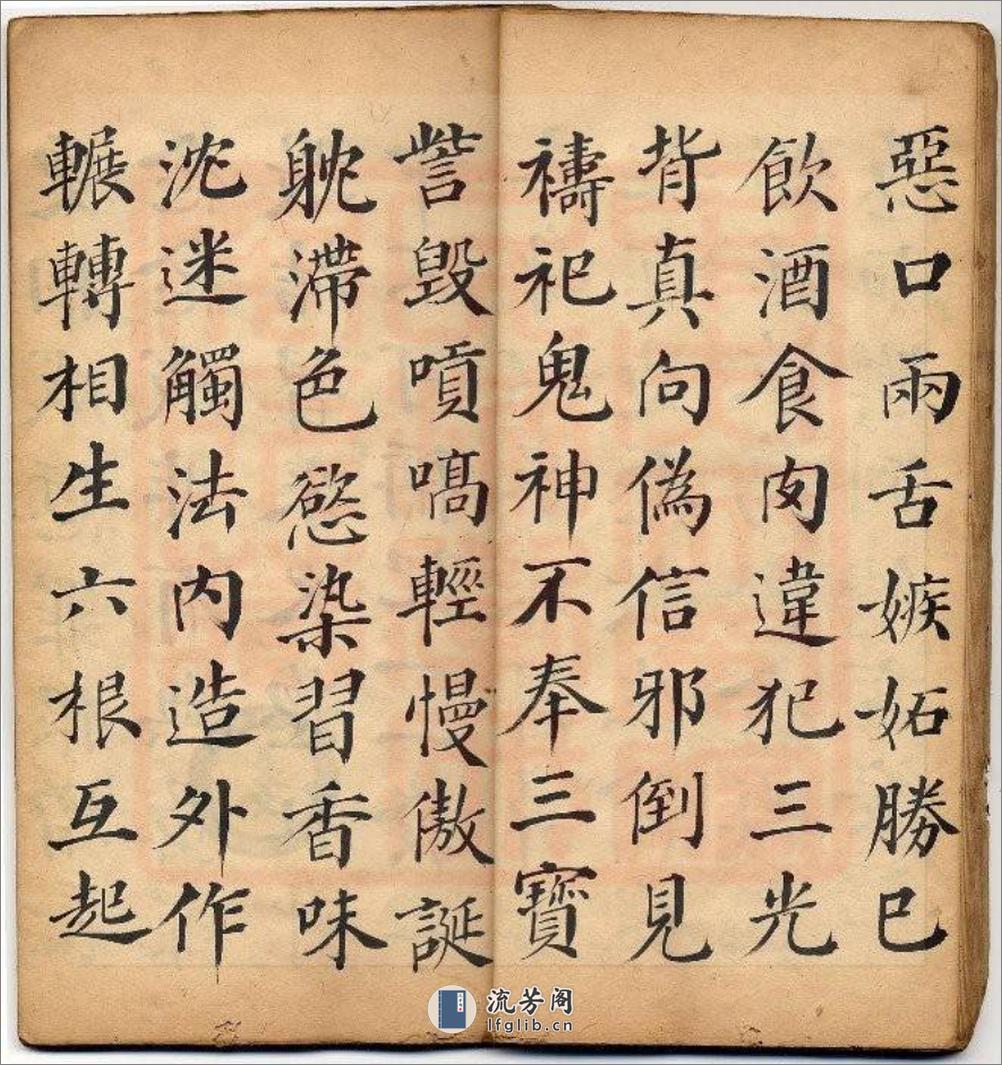 惡口兩舌嫉妬勝己
飲酒食肉違犯三光
背真向偽信邪倒見
禱祀鬼神不奉三寶
訾毀嘖嗃輕慢傲誕
躭滯色慾染習香味
沈迷觸法內造外作
輾轉相生六根互起
流芳阁
lfglib.cn